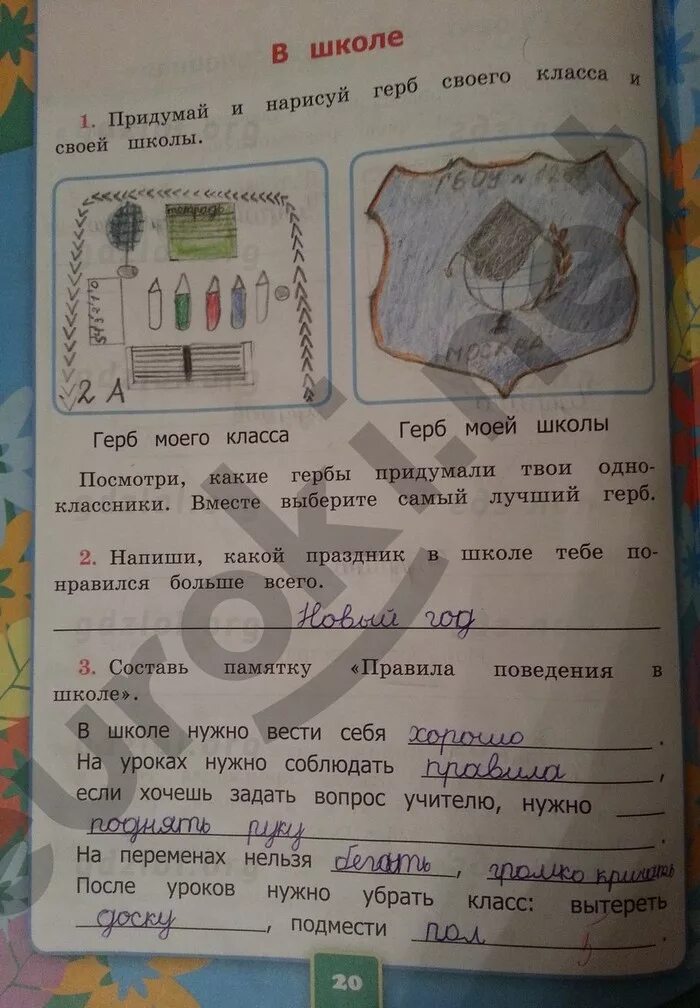 В ШКОЛЕ
1. Придумай и нарисуй герб своего класса и
своей школы.
тетрадь
543210
2 А
ГБОУ №
МОСКВА
Герб моего класса
Герб моей школы
Посмотри, какие гербы придумали твои одно-
классники. Вместе выберите самый лучший герб.
2. Напиши, какой праздник в школе тебе по-
нравился больше всего.
Новый год
3. Составь памятку «Правила поведения в
школе».
В школе нужно вести себя хорошо.
На уроках нужно соблюдать правила,
если хочешь задать вопрос учителю, нужно
поднять руку.
На переменах нельзя бегать, громко кричать
После уроков нужно убрать класс: вытереть
доску, подмести пол.
5
20
euroki.net